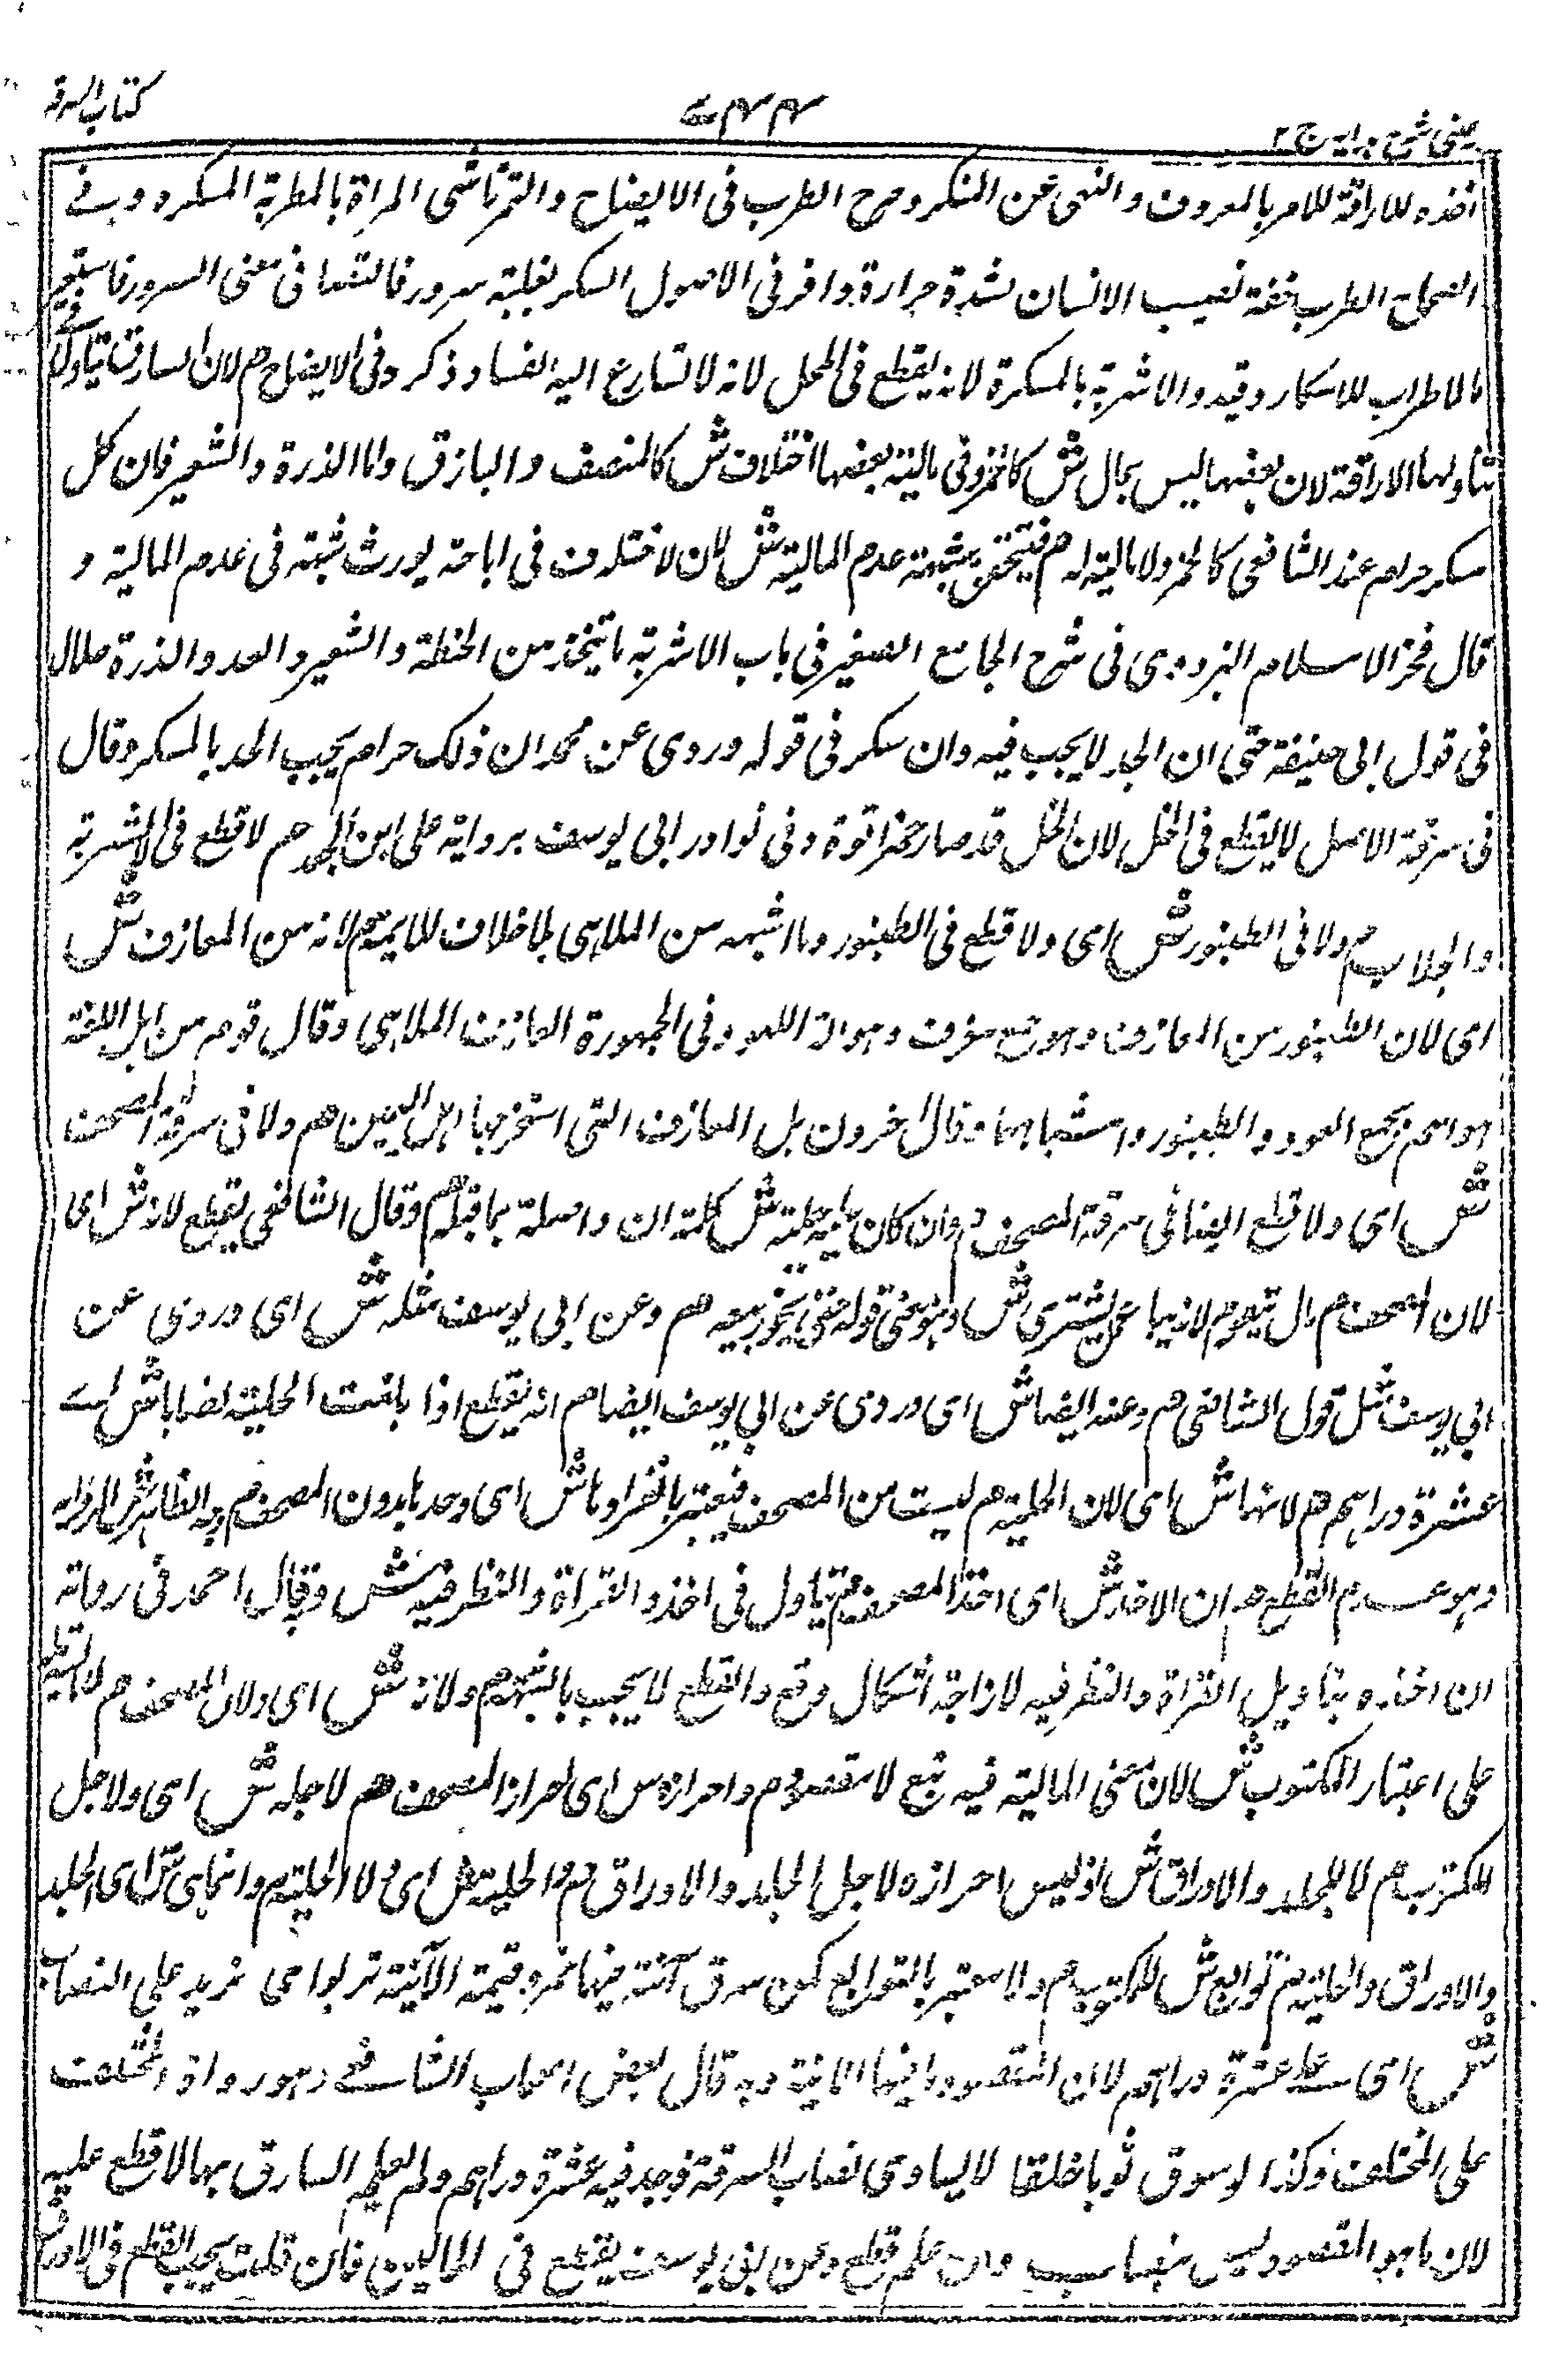 عینی شرح ہدایہ ج ۲
کتاب السرقة
اخذه للاراقة للامر بالمعروف والنهی عن المنکر وصرح الطرب فی الایضاح والتمرتاشی المراة بالمطربة المسکره و فی
الصحاح الطرب خفة تصیب الانسان لشدة حرارة وافر فی الاصول السکر لغلبة سرور فالتقتا فی معنی السرور فاستعیر
الاطراب للاسکار وقید والاشربة بالمسکرة لانه یقطع فی الخل لانه لا تسارع الیه الفساد ذکره فی الایضاح م لان السارق یتاول فی
تناولها الاراقة لان بعضها لیس بمال ش کالخمر وفی مالیة بعضها اختلاف ش کالمنصف والباذق واما الذرة والشعیر فان کل
مسکر حرام عند الشافعی کالخمر ولا مالیة له م فیتحقق شبهة عدم المالیة ش لان لاختلاف فی اباحته یورث شبهة فی عدم المالیة و
قال فخر الاسلام البزدوی فی شرح الجامع الصغیر فی باب الاشربة ما یتخذ من الحنطة والشعیر والعسل والذرة حلال
فی قول ابی حنیفة حتی ان الحد لا یجب فیه وان سکر فی قوله وروی عن محمد ان ذلک حرام یجب الحد بالسکر وقال
فی سرقة الاصل لا یقطع فی الخل لان الخل قد صار خمرا قوة وفی نوادر ابی یوسف بروایة علی ابن الجعد م لا قطع فی الاشربة
والجلاب م ولا فی الطنبور ش ای ولا قطع فی الطنبور وما اشبهه من الملاهی بلا خلاف للایمة م لانه من المعازف ش
ای لان الطنبور من المعازف وهو جمع معزف وهو الة اللهو وفی الجمهورة المعازف الملاهی وقال قوم من اهل اللغة
هو اسم یجمع العود والطنبور واشباههما وقال اخرون بل المعازف التی استخرجها اهل الیمن م ولا فی سرقة المصحف
ش ای ولا قطع ایضا فی سرقة المصحف م وان کان علیه حلیة ش کلمة ان واصلة بما قبله م وقال الشافعی یقطع لانه ش ای
لان المصحف م مال متقوم لانه یباع ویشتری ش وهو معنی قوله حتی یجوز بیعه م وعن ابی یوسف مثله ش ای وروی عن
ابی یوسف مثل قول الشافعی م وعنه ایضا ش ای وروی عن ابی یوسف ایضا م انه یقطع اذا بلغت الحلیة نصابا ش ای
عشرة دراهم م لانها ش ای لان الحلیة م لیست من المصحف فیعتبر بانفرادها ش ای وحدها بدون المصحف م وجه الظاهر ش الروایه
وهو عدم القطع م ان الاخذ ش ای اخذ المصحف م یتاول فی اخذه القراة والنظر فیه ش وقال احمد فی روایة
ان اخذه بتاویل القراة والنظر فیه لازاحة اشکال وقع والقطع لا یجب بالشبهة م ولانه ش ای ولان المصحف م لا مالیة له
علی اعتبار المکتوب ش لان معنی المالیة فیه تبع لا مقصود م واحرازه ش ای احراز المصحف م لاجله ش ای ولاجل
المکتوب م لا للجلد والاوراق ش اذ لیس احرازه لاجل الجلد والاوراق م والحلیة ش ای ولا الحلیة م وانما هی ش ای الجلد
والاوراق والحلیة م توابع ش للمکتوب م ولا معتبر بالتوابع کمن سرق آنیة فیها خمر وقیمة الآنیة تربوا ای تزید علی النصاب
ش ای علی عشرة دراهم لان المقصود ما فیها الآنیة وبه قال بعض اصحاب الشافعی وهو رواة اختلفت
علی المختلف وکذا لو سرق ثوبا خلقا لا یساوی نصاب السرقة فوجد فیه عشرة دراهم ولم یعلم السارق بها لا قطع علیه
لان ما هو المقصود لیس بنصاب وان علم قطع وعن ابی یوسف یقطع فی الحالین فان قلت یجب القطع فی الاوراق